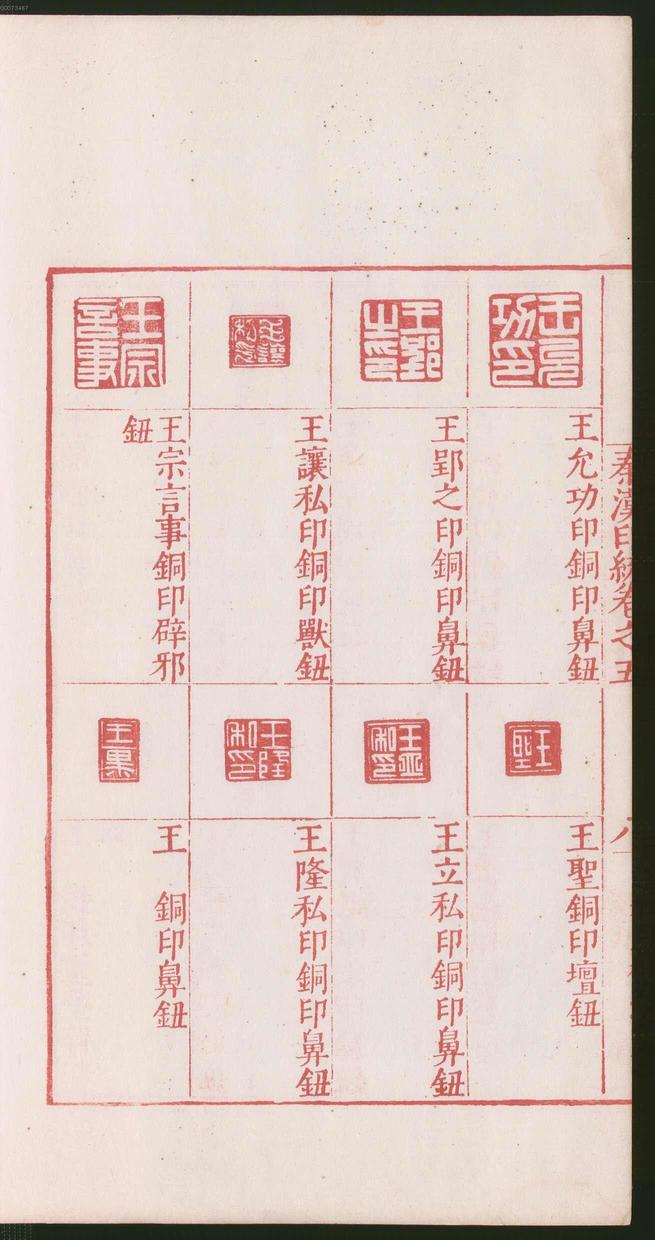 00073467
秦漢印統卷之五
八
王允功印銅印鼻鈕
王郢之印銅印鼻鈕
王讓私印銅印獸鈕
王宗言事銅印辟邪
鈕
王聖銅印壇鈕
王立私印銅印鼻鈕
王隆私印銅印鼻鈕
王　銅印鼻鈕